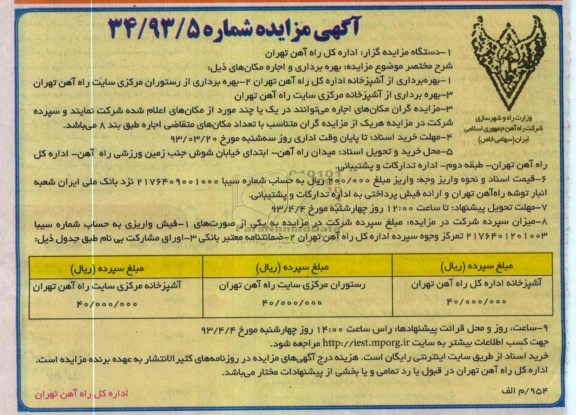 آگهی مزایده شماره ۳۴/۹۳/۵
وزارت راه و شهرسازی
شرکت راه آهن جمهوری اسلامی
ایران (سهامی خاص)
۱-دستگاه مزایده گزار: اداره کل راه آهن تهران
شرح مختصر موضوع مزایده: بهره برداری و اجاره مکان‌های ذیل:
۱-بهره‌برداری از آشپزخانه اداره کل راه آهن تهران ۲-بهره برداری از رستوران مرکزی سایت راه آهن تهران
۳-بهره برداری از آشپزخانه مرکزی سایت راه آهن تهران
۳-مزایده گران مکان‌های اجاره می‌توانند در یک یا چند مورد از مکان‌های اعلام شده شرکت نمایند و سپرده
شرکت در مزایده هریک از مزایده گران متناسب با تعداد مکان‌های متقاضی اجاره طبق بند ۸ می‌باشد.
۴-مهلت خرید اسناد: تا پایان وقت اداری روز سه‌شنبه مورخ ۹۳/۰۳/۲۰
۵-محل خرید و تحویل اسناد: میدان راه آهن- ابتدای خیابان شوش جنب زمین ورزشی راه آهن- اداره کل
راه آهن تهران- طبقه دوم- اداره تدارکات و پشتیبانی.
۶-قیمت اسناد و نحوه واریز وجه: واریز مبلغ ۲۰۰/۰۰۰ ریال به حساب شماره سیبا ۲۱۷۶۴۰۹۰۰۱۰۰۰ نزد بانک ملی ایران شعبه
انبار توشه راه‌آهن تهران و ارائه فیش پرداختی به اداره تدارکات و پشتیبانی.
۷-مهلت تحویل پیشنهاد: تا ساعت ۱۲:۰۰ روز چهارشنبه مورخ ۹۳/۴/۴
۸-میزان سپرده شرکت در مزایده: مبلغ سپرده شرکت در مزایده به یکی از صورت‌های ۱-فیش واریزی به حساب شماره سیبا
۲۱۷۶۴۰۱۲۰۱۰۰۳ تمرکز وجوه سپرده اداره کل راه آهن تهران ۲-ضمانتنامه معتبر بانکی ۳-اوراق مشارکت بی نام طبق جدول ذیل:
مبلغ سپرده (ریال) مبلغ سپرده (ریال) مبلغ سپرده (ریال)
آشپزخانه اداره کل راه آهن تهران رستوران مرکزی سایت راه آهن تهران آشپزخانه مرکزی سایت راه آهن تهران
۴۰/۰۰۰/۰۰۰ ۴۰/۰۰۰/۰۰۰ ۴۰/۰۰۰/۰۰۰
۹-ساعت، روز و محل قرائت پیشنهادها: راس ساعت ۱۴:۰۰ روز چهارشنبه مورخ ۹۳/۴/۴
جهت کسب اطلاعات بیشتر به سایت http://iest.mporg.it مراجعه شود.
خرید اسناد از طریق سایت اینترنتی رایگان است. هزینه درج آگهی‌های مزایده در روزنامه‌های کثیرالانتشار به عهده برنده مزایده است.
اداره کل راه آهن تهران در قبول یا رد تمامی و یا بخشی از پیشنهادات مختار می‌باشد.
۹۵۴/م الف
اداره کل راه آهن تهران